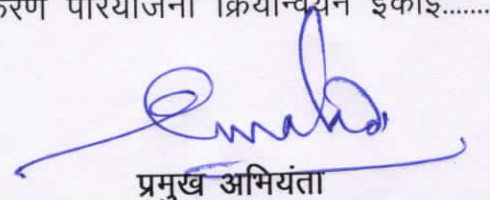 करण परियोजना क्रियान्वयन इकाई........
प्रमुख अभियंता